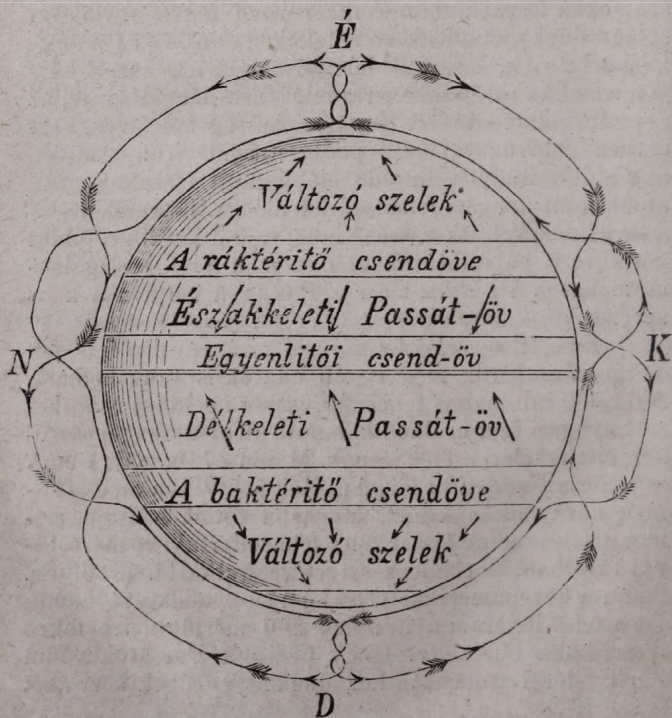 É
Változó szelek
A ráktéritő csendöve
Északkeleti Passát-öv
N
Egyenlitői csend-öv
K
Délkeleti Passát-öv
A baktéritő csendöve
Változó szelek
D